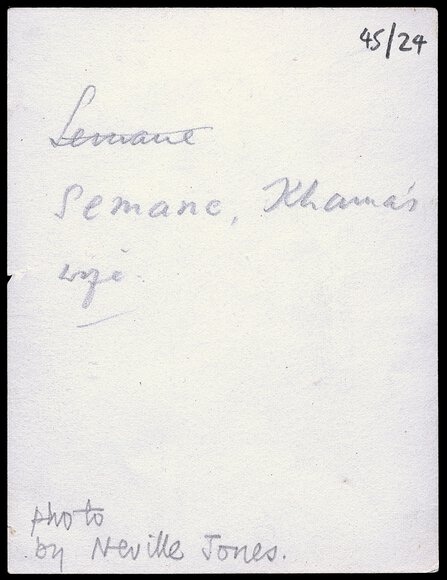 45/24
Semane
Semane, Khama's
wife
photo
by Neville Jones.